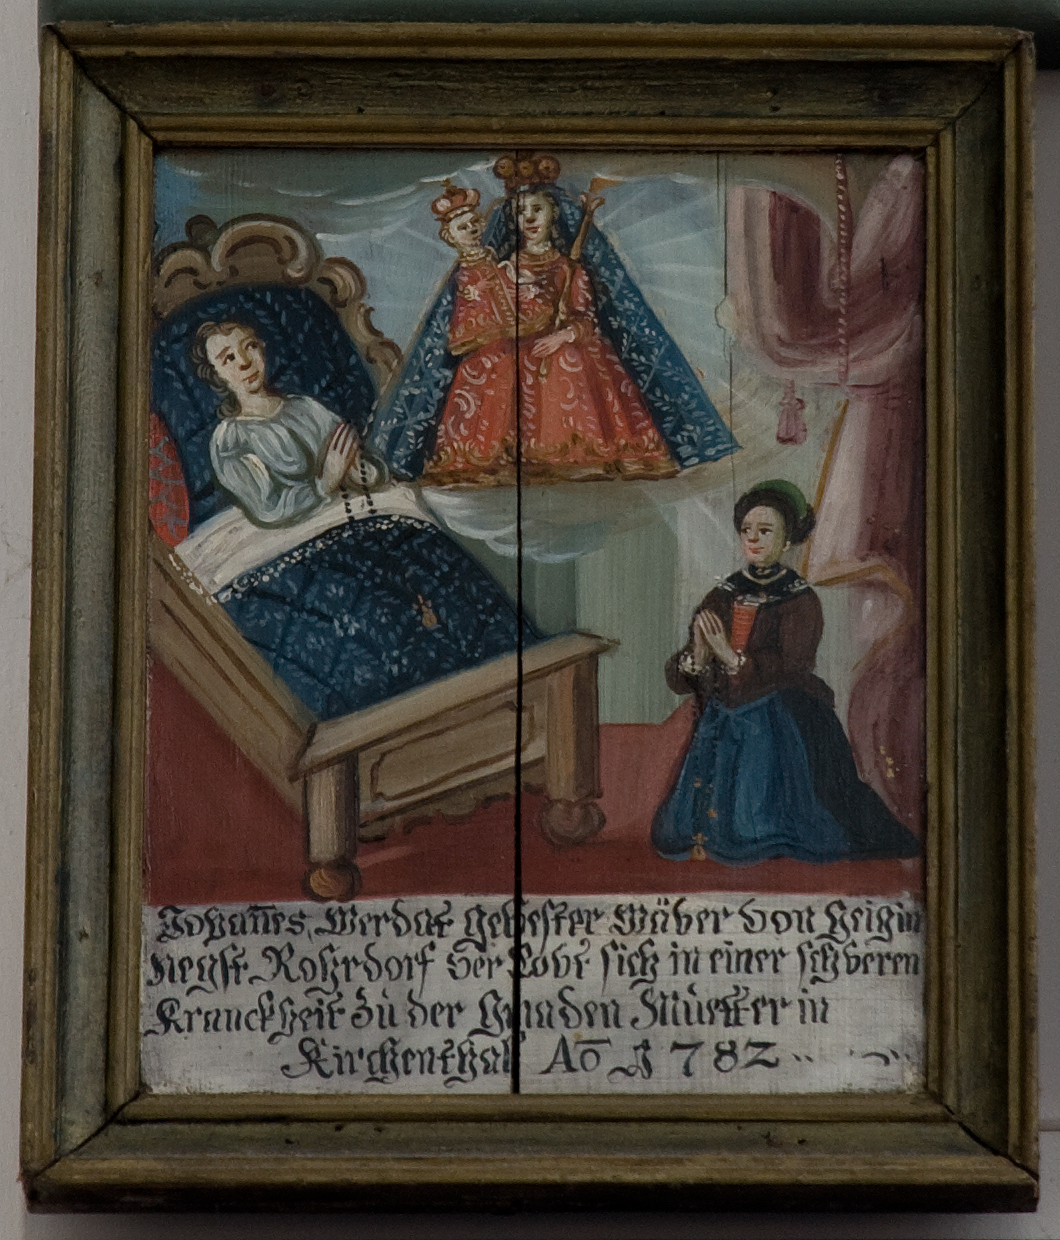 Johannes Werdat gewester Mäyer von Heigin
nenst Roschdorf Ver Lobt sich in einer schweren
Kranckheit zu der Gnaden Muetter in
Kirchenthal Aō 1782